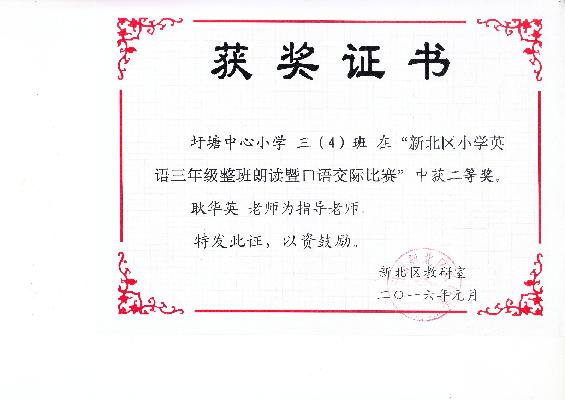 获奖证书
圩塘中心小学 三（4）班 在 “新北区小学英
语三年级整班朗读暨口语交际比赛” 中获二等奖。
耿华英 老师为指导老师。
特发此证，以资鼓励。
新北区教研室
二〇一六年元月